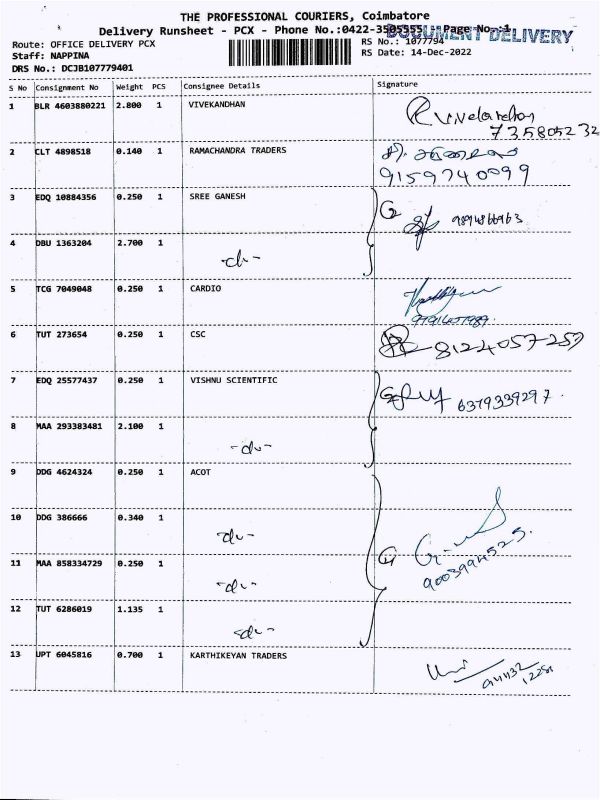 THE PROFESSIONAL COURIERS, Coimbatore
Delivery Runsheet - PCX - Phone No.:0422-3505555 Page No.:1
DOCUMENT DELIVERY
Route: OFFICE DELIVERY PCX
RS No.: 1077794
Staff: NAPPINA
RS Date: 14-Dec-2022
DRS No.: DCJB107779401
S No Consignment No Weight PCS Consignee Details Signature
1 BLR 4603880221 2.800 1 VIVEKANDHAN
735805232
2 CLT 4898518 0.140 1 RAMACHANDRA TRADERS
9159740099
3 EDQ 10884356 0.250 1 SREE GANESH
4 DBU 1363204 2.700 1
-do-
5 TCG 7049048 0.250 1 CARDIO
6 TUT 273654 0.250 1 CSC 8124057257
7 EDQ 25577437 0.250 1 VISHNU SCIENTIFIC
6379339297.
8 MAA 293383481 2.100 1
-do-
9 DDG 4624324 0.250 1 ACOT
10 DDG 386666 0.340 1
-do-
11 MAA 858334729 0.250 1
-do-
9003994525.
12 TUT 6286019 1.135 1
-do-
13 UPT 6045816 0.700 1 KARTHIKEYAN TRADERS